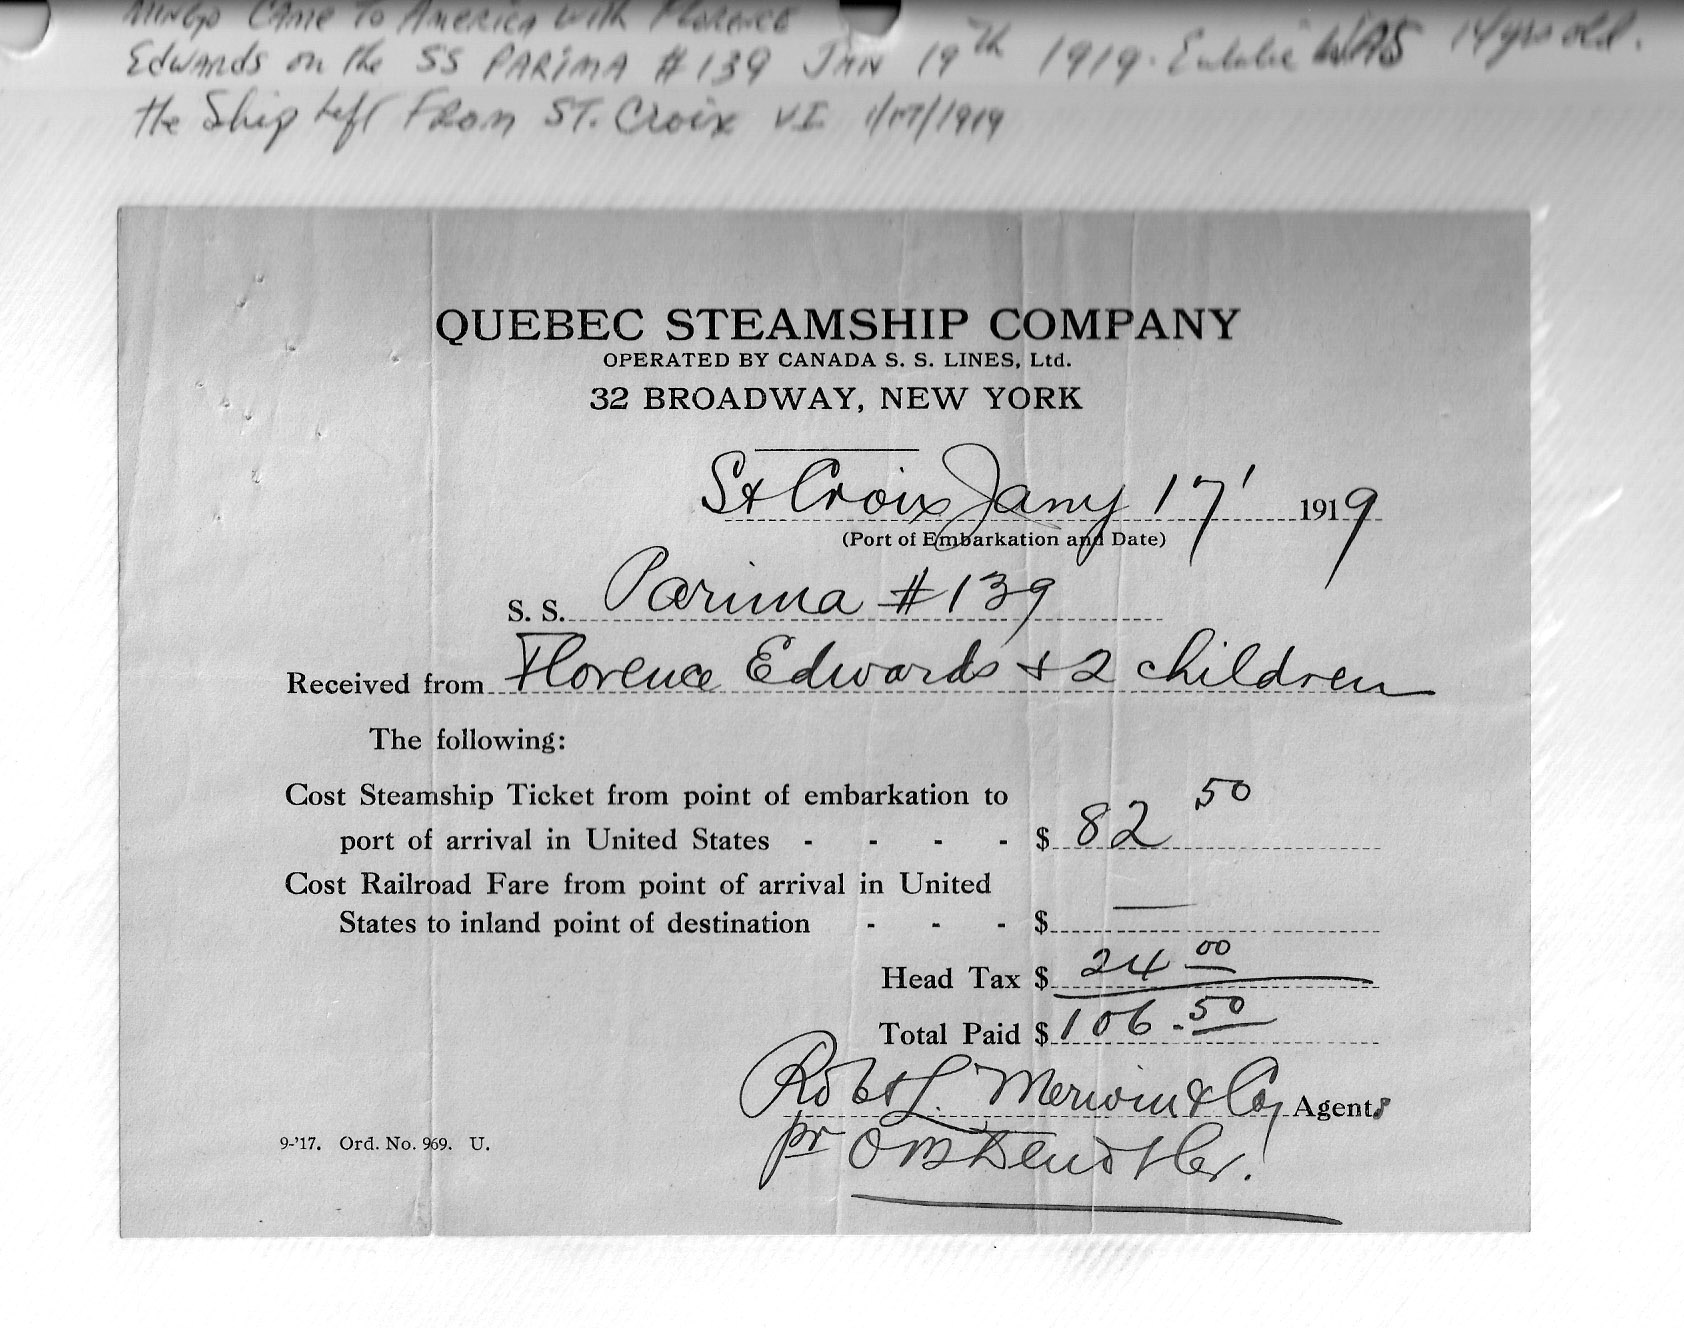 Mingo CAme To America with Florence
Edwards on the SS PARIMA # 139 JAN 19th 1919. WAS 14 yrs old.
the Ship left From ST. Croix VI 1/17/1919
QUEBEC STEAMSHIP COMPANY
OPERATED BY CANADA S. S. LINES, Ltd.
32 BROADWAY, NEW YORK
St Croix Jany 17' 1919
(Port of Embarkation and Date)
S. S. Parima # 139
Received from Florence Edwards + 2 children
The following:
Cost Steamship Ticket from point of embarkation to
port of arrival in United States - - - - $ 82 50
Cost Railroad Fare from point of arrival in United
States to inland point of destination - - - $ —
Head Tax $ 24 00
Total Paid $ 106.50
Robt L. Merwin & Co, Agents
pr
9-'17. Ord. No. 969. U.